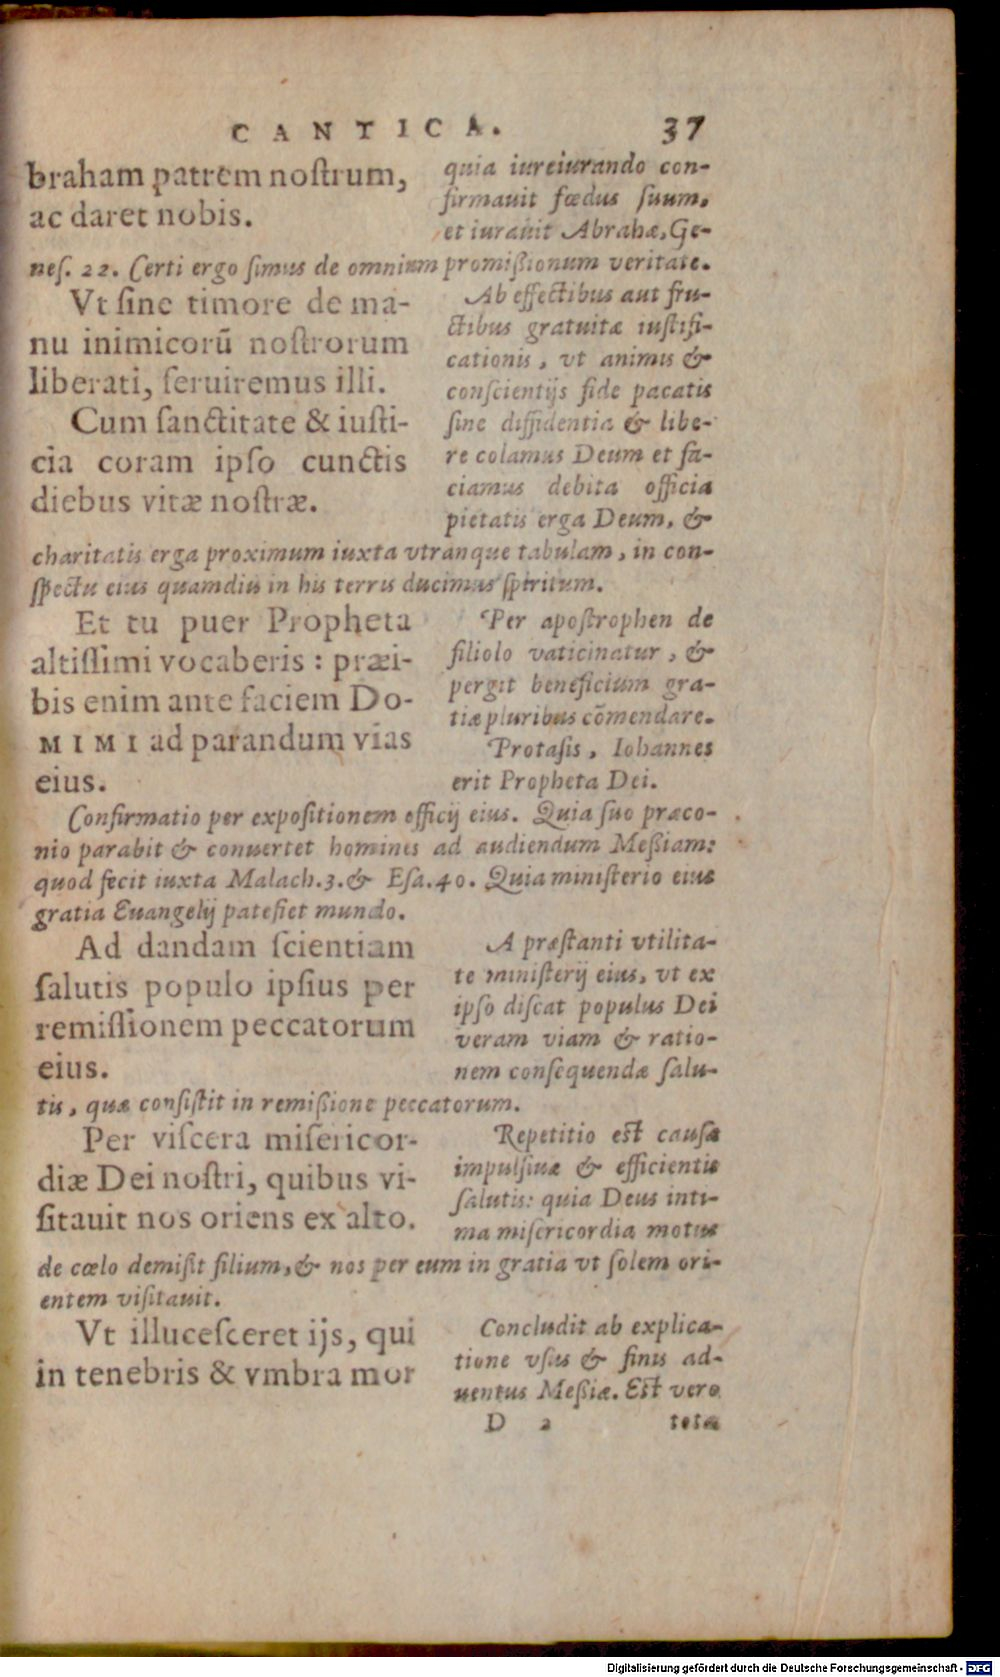 CANTICA. 37
braham patrem nostrum,
ac daret nobis.
quia iureiurando con-
firmauit fœdus suum,
et iurauit Abrahæ, Ge-
nes. 22. Certi ergo simus de omnium promißionum veritate.
Vt sine timore de ma-
nu inimicorũ nostrorum
liberati, seruiremus illi.
Cum sanctitate & iusti-
cia coram ipso cunctis
diebus vitæ nostræ.
Ab effectibus aut fru-
ctibus gratuitæ iustifi-
cationis, vt animis &
conscientijs fide pacatis
sine diffidentia & libe-
re colamus Deum et fa-
ciamus debita officia
pietatis erga Deum, &
charitatis erga proximum iuxta vtranque tabulam, in con-
spectu eius quamdiu in his terris ducimus spiritum.
Et tu puer Propheta
altissimi vocaberis: præi-
bis enim ante faciem Do-
MIMI ad parandum vias
eius.
Per apostrophen de
filiolo vaticinatur, &
pergit beneficium gra-
tiæ pluribus cõmendare.
Protasis, Iohannes
erit Propheta Dei.
Confirmatio per expositionem efficij eius. Quia suo præco-
nio parabit & conuertet homines ad audiendum Meßiam:
quod fecit iuxta Malach.3.& Esa.40. Quia ministerio eius
gratia Euangelij patefiet mundo.
Ad dandam scientiam
salutis populo ipsius per
remissionem peccatorum
eius.
A præstanti vtilita-
te ministerij eius, vt ex
ipso discat populus Dei
veram viam & ratio-
nem consequendæ salu-
tis, quæ consistit in remißione peccatorum.
Per viscera misericor-
diæ Dei nostri, quibus vi-
sitauit nos oriens ex alto.
Repetitio est causæ
impulsiuæ & efficientis
salutis: quia Deus inti-
ma misericordia motus
de cœlo demisit filium, & nos per eum in gratia vt solem ori-
entem visitauit.
Vt illucesceret ijs, qui
in tenebris & vmbra mor
Concludit ab explica-
tione vsus & finis ad-
uentus Meßiæ. Est vero
D 2 tota
Digitalisierung gefördert durch die Deutsche Forschungsgemeinschaft - DFG